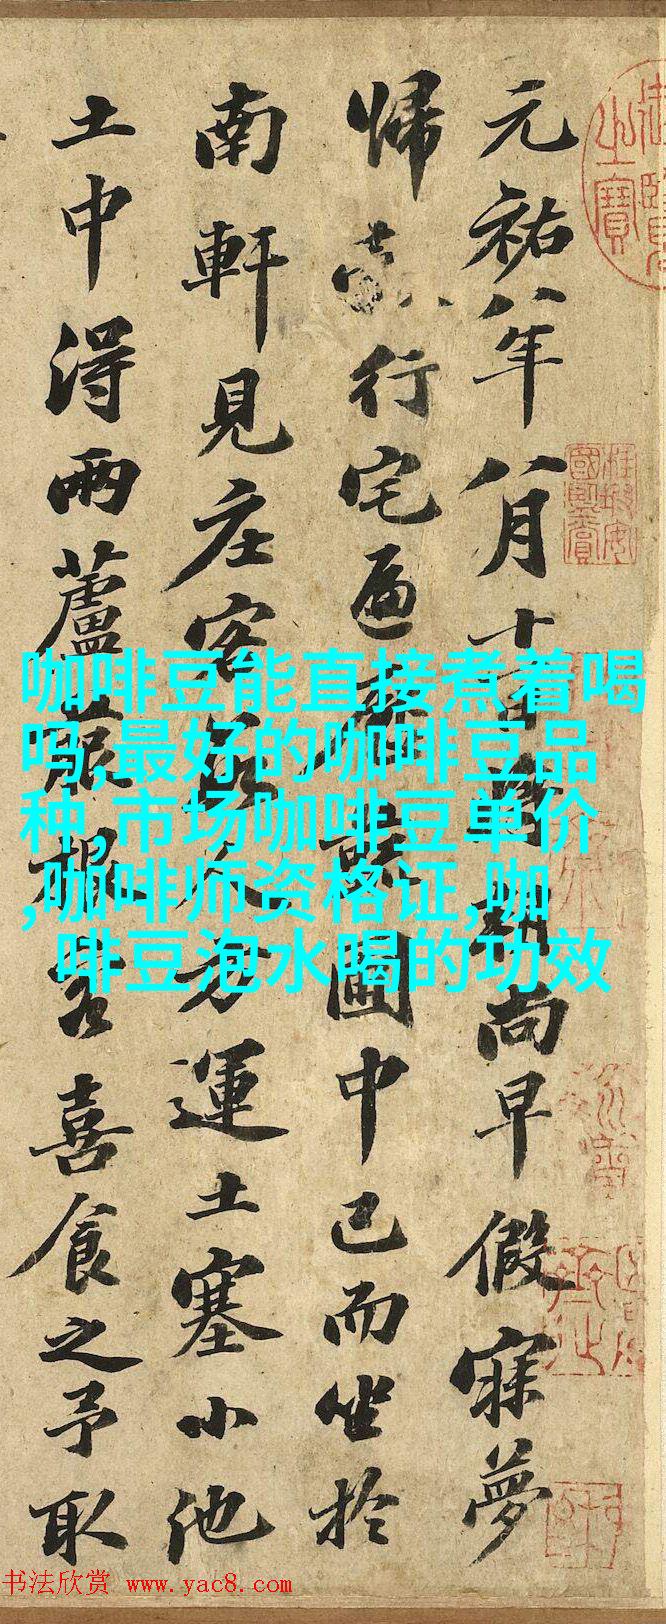 元祐八年八月十日將朝尚早假寐夢
歸行宅遍歷蔬圃中已而坐於
南軒見庄客數人方運土塞小池
土中得兩蘆菔根客喜食之予取
咖啡豆能直接煮着喝
吗,最好的咖啡豆品
种,市场咖啡豆单价
,咖啡师资格证,咖
啡豆泡水喝的功效
书法欣赏 www.yac8.com